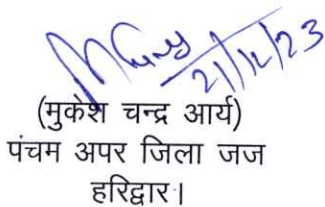 21/12/23
(मुकेश चन्द्र आर्य)
पंचम अपर जिला जज
हरिद्वार।